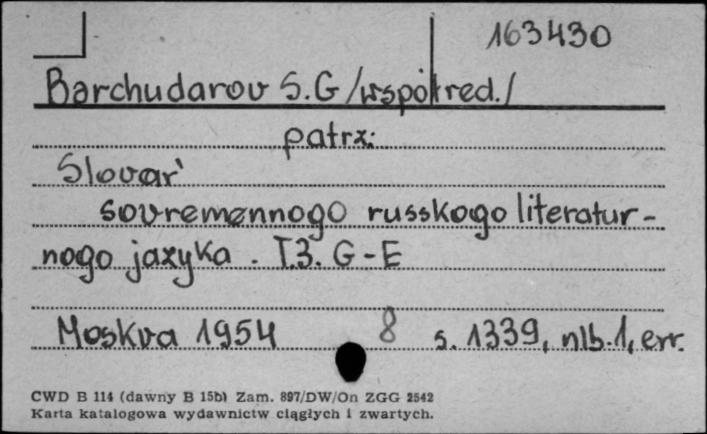 163430
Barchudarov S.G /współred./
patrz:
Slovar'
sovremennogo russkogo literatur-
nogo jazyka. T.3. G-E
Moskva 1954 8 s. 1339, nlb. 1, err.
CWD B 114 (dawny B 15b) Zam. 897/DW/On ZGG 2542
Karta katalogowa wydawnictw ciągłych i zwartych.